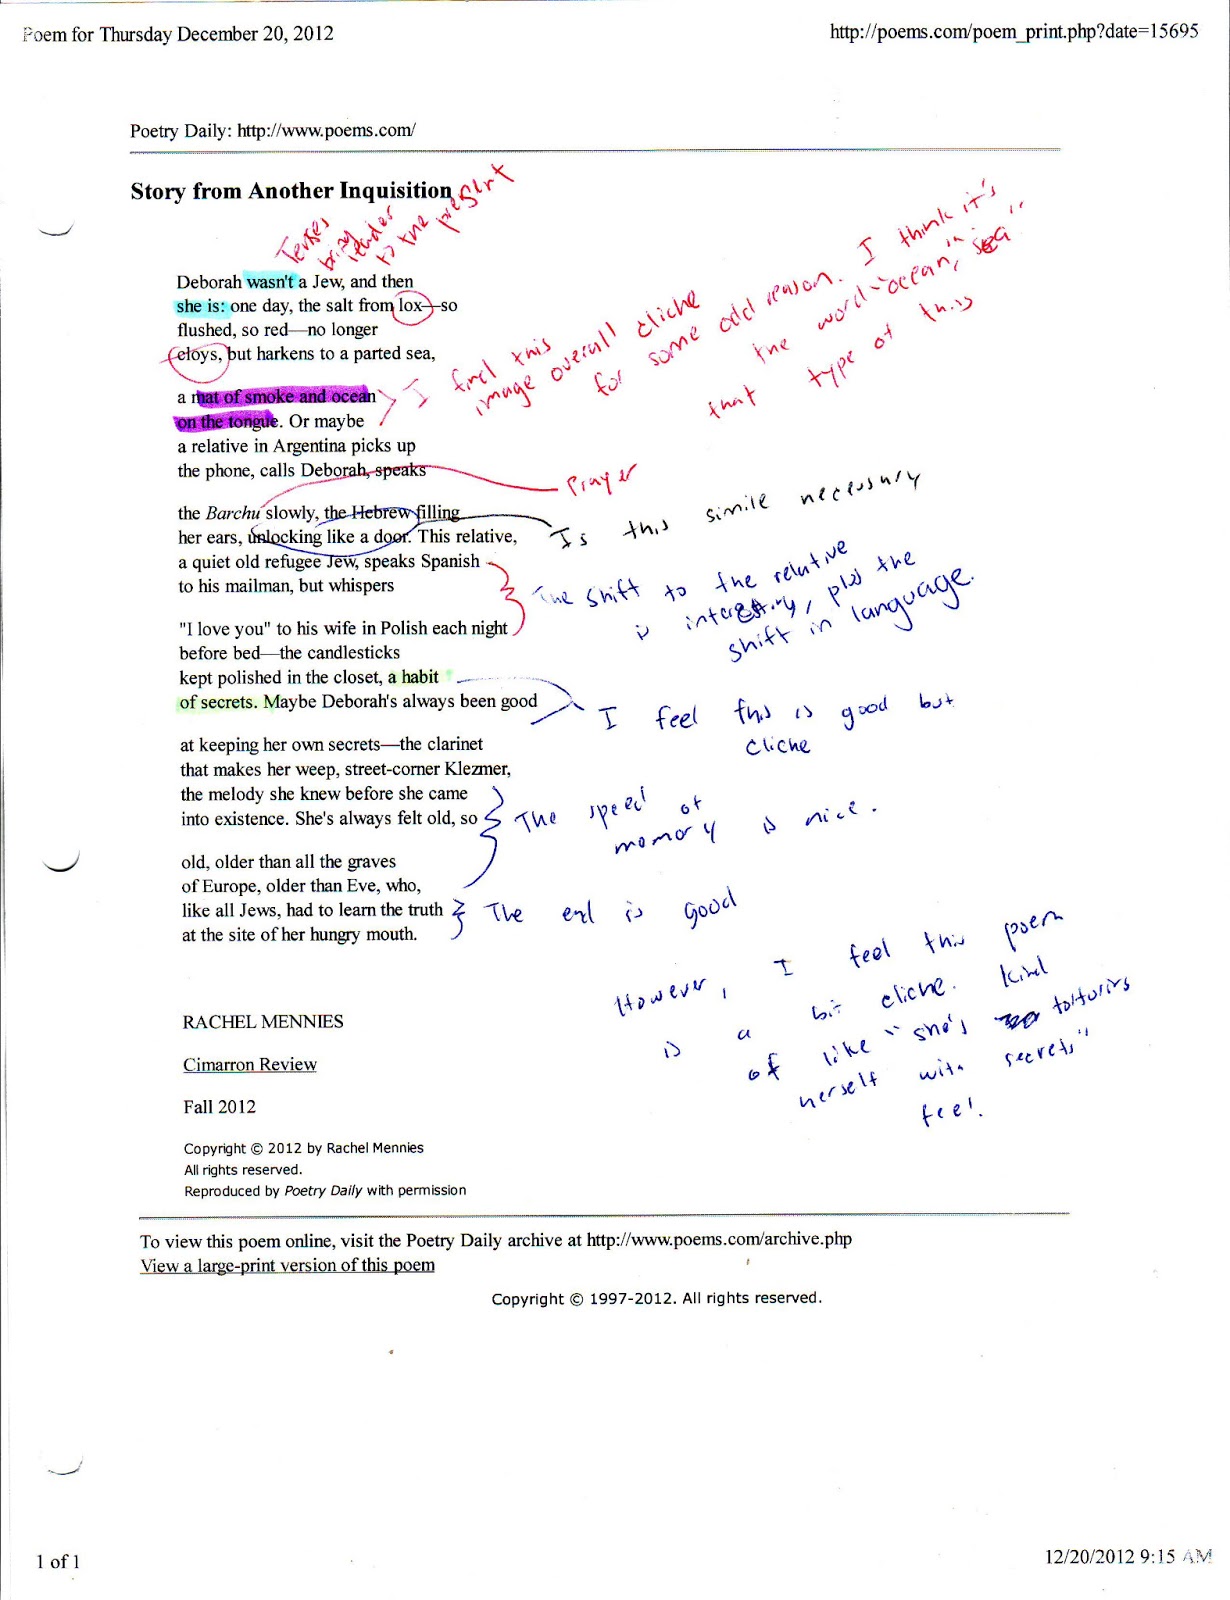 Poem for Thursday December 20, 2012
http://poems.com/poem_print.php?date=15695
Poetry Daily: http://www.poems.com/
Story from Another Inquisition
Tenses
bring
reader
to the present
Deborah wasn't a Jew, and then
she is: one day, the salt from lox—so
flushed, so red—no longer
cloys, but harkens to a parted sea,
I find this
image overall cliche
for some odd reason. I think it's
the word "ocean," "sea"
that type of this
a mat of smoke and ocean
on the tongue. Or maybe
a relative in Argentina picks up
the phone, calls Deborah, speaks
Prayer
the Barchu slowly, the Hebrew filling
her ears, unlocking like a door. This relative,
a quiet old refugee Jew, speaks Spanish
to his mailman, but whispers
Is this simile necessary
The shift to the relative
is interesting, plus the
shift in language.
"I love you" to his wife in Polish each night
before bed—the candlesticks
kept polished in the closet, a habit
of secrets. Maybe Deborah's always been good
I feel this is good but
cliche
at keeping her own secrets—the clarinet
that makes her weep, street-corner Klezmer,
the melody she knew before she came
into existence. She's always felt old, so
The speed of
memory is nice.
old, older than all the graves
of Europe, older than Eve, who,
like all Jews, had to learn the truth
at the site of her hungry mouth.
The end is good
However, I feel this poem
is a bit cliche. Kind
of like "she's torturing
herself with secrets"
feel.
RACHEL MENNIES
Cimarron Review
Fall 2012
Copyright © 2012 by Rachel Mennies
All rights reserved.
Reproduced by Poetry Daily with permission
To view this poem online, visit the Poetry Daily archive at http://www.poems.com/archive.php
View a large-print version of this poem
Copyright © 1997-2012. All rights reserved.
1 of 1
12/20/2012 9:15 AM